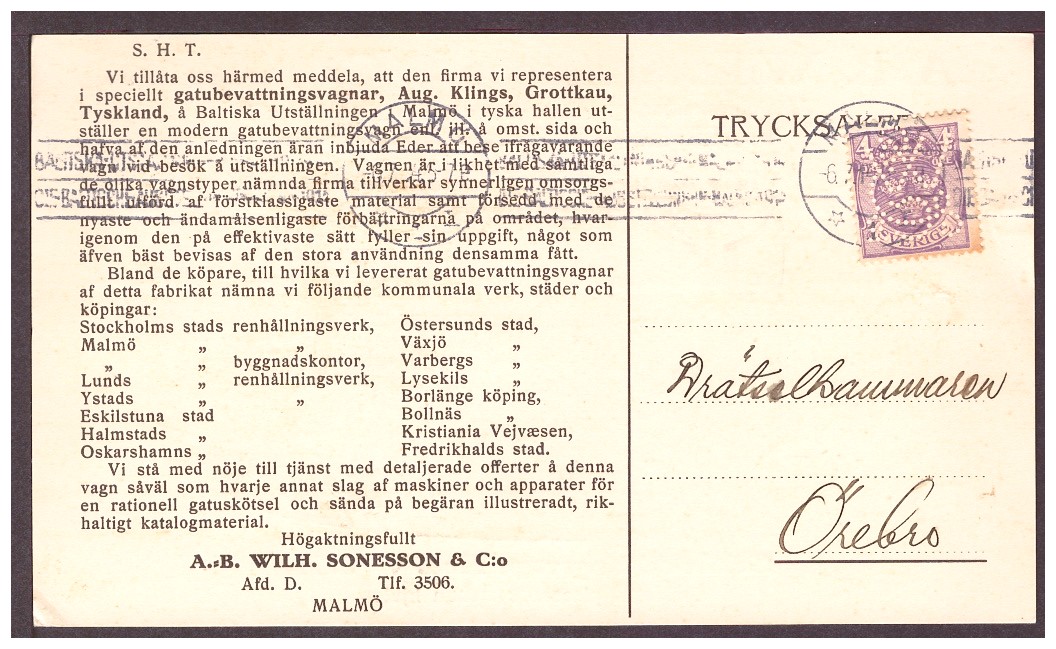 S. H. T.
Vi tillåta oss härmed meddela, att den firma vi representera
i speciellt gatubevattningsvagnar, Aug. Klings, Grottkau,
Tyskland, å Baltiska Utställningen i Malmö i tyska hallen ut-
ställer en modern gatubevattningsvagn enl. ill. å omst. sida och
hafva af den anledningen äran inbjuda Eder att bese ifrågavarande
vagn vid besök å utställningen. Vagnen är i likhet med samtliga
de olika vagnstyper nämnda firma tillverkar synnerligen omsorgs-
fullt utförd af förstklassigaste material samt försedd med de
nyaste och ändamålsenligaste förbättringarna på området, hvar-
igenom den på effektivaste sätt fyller sin uppgift, något som
äfven bäst bevisas af den stora användning densamma fått.
Bland de köpare, till hvilka vi levererat gatubevattningsvagnar
af detta fabrikat nämna vi följande kommunala verk, städer och
köpingar:
Stockholms stads renhållningsverk,
Malmö „ „
„ „ byggnadskontor,
Lunds „ renhållningsverk,
Ystads „ „
Eskilstuna stad
Halmstads „
Oskarshamns „
Östersunds stad,
Växjö „
Varbergs „
Lysekils „
Borlänge köping,
Bollnäs „
Kristiania Vejvæsen,
Fredrikhalds stad.
Vi stå med nöje till tjänst med detaljerade offerter å denna
vagn såväl som hvarje annat slag af maskiner och apparater för
en rationell gatuskötsel och sända på begäran illustreradt, rik-
haltigt katalogmaterial.
Högaktningsfullt
A.-B. WILH. SONESSON & C:o
Afd. D. Tlf. 3506.
MALMÖ
MALMÖ
TRYCKSAKER
4
SVERIGE
Drätselkammaren
Örebro